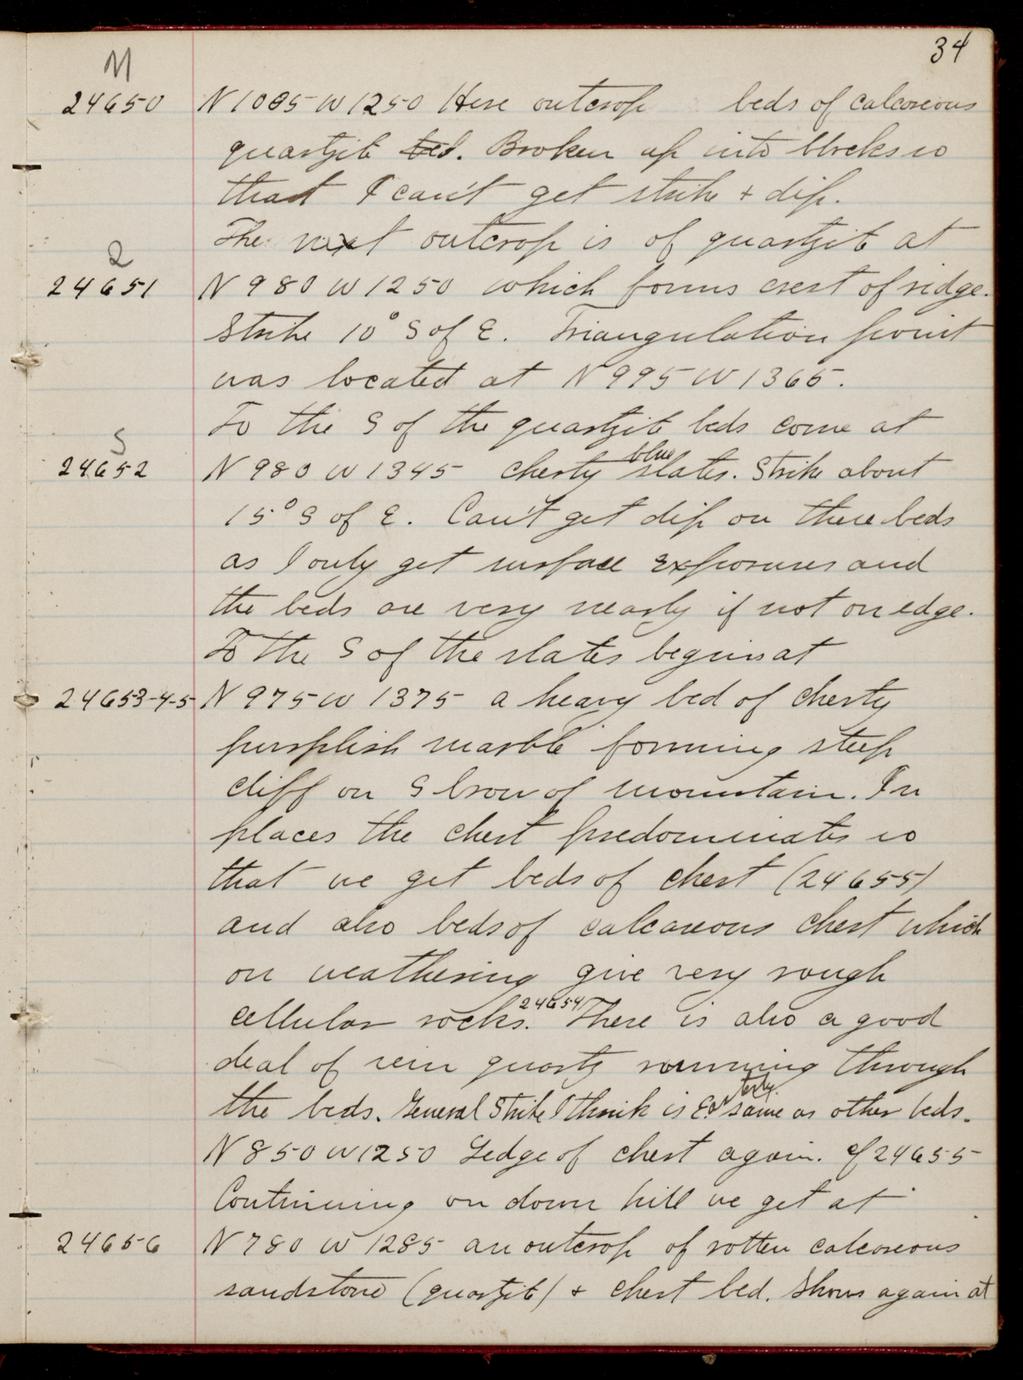 34
M
24650 N 1085 W 1250 Here outcrop beds of calcareous
quartzite bed. Broken up into blocks so
that I can't get strike + dip.
The next outcrop is of quartzite at
2
24651 N 980 W 1250 which forms crest of ridge.
Strike 10° S of E. Triangulation point
was located at N 995 W 1365.
To the S of the quartzite beds come at
S
24652 N 980 W 1345 cherty blue slates. Strike about
15° S of E. Can't get dip on these beds
as I only get surface exposures and
the beds are very nearly if not on edge.
To the S of the slates begins at
24653-4-5 N 975 W 1375 a heavy bed of cherty
purplish marble forming steep
cliff on S brow of mountain. In
places the chert predominates so
that we get beds of chert (24655)
and also beds of calcareous chert which
on weathering give very rough
cellular rocks. 24654 There is also a good
deal of vein quartz running through
the beds. General Strike I think is E. erly same as other beds.
N 850 W 1250 Ledge of chert again. Cf 24655
Continuing on down hill we get at
24656 N 780 W 1285 an outcrop of rotten calcareous
sandstone (quartzite) + chert bed. Shows again at